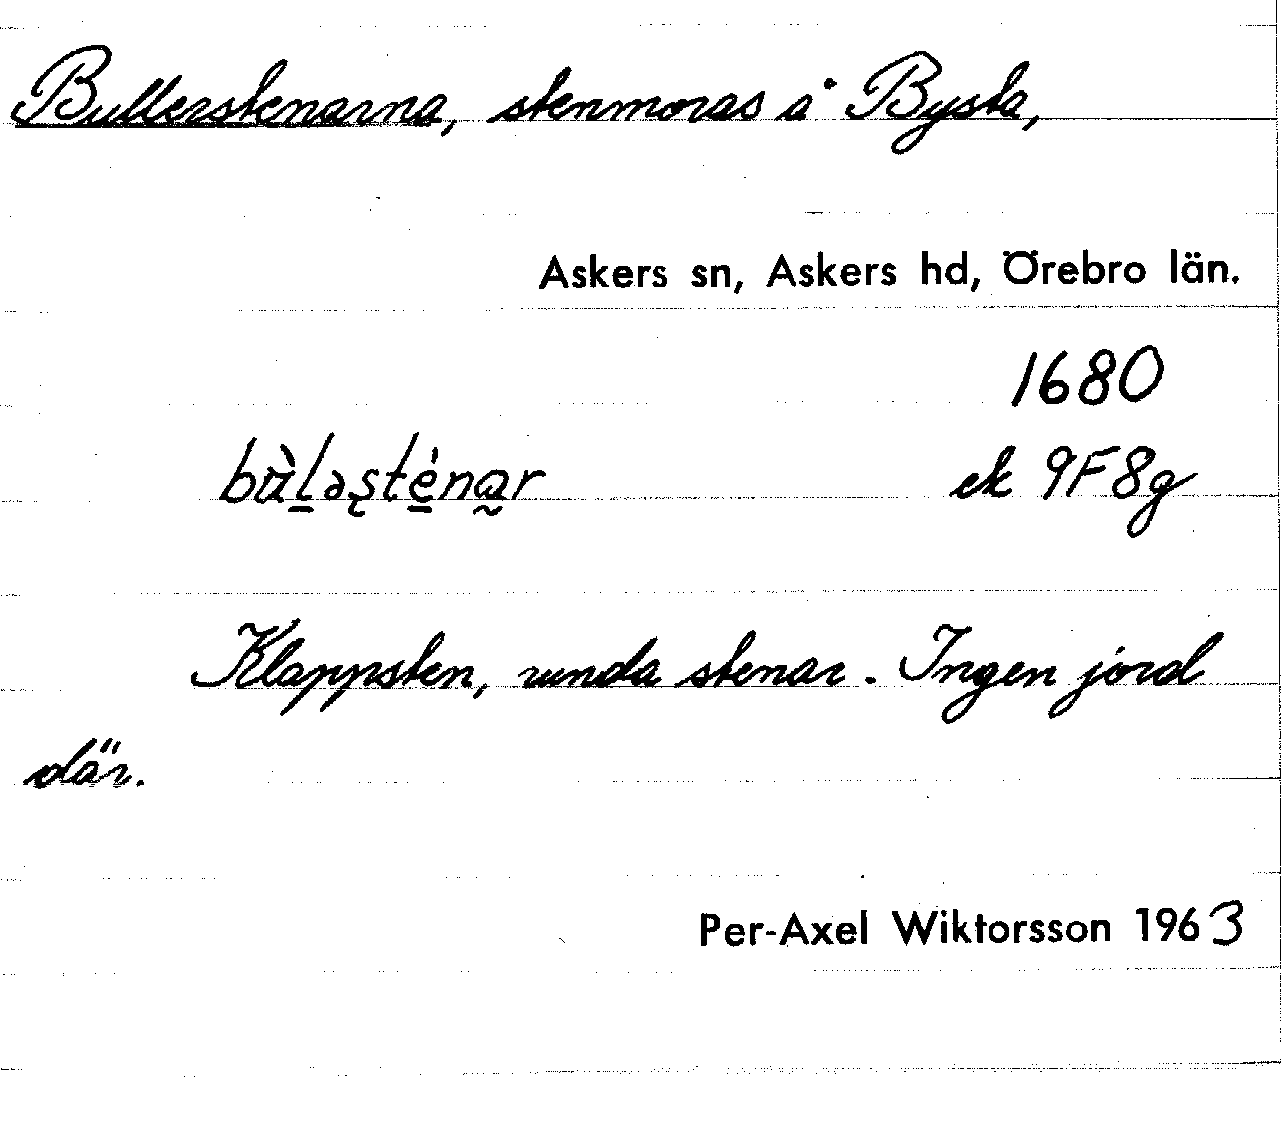 Bullerstenarna, stenmoras å Bysta,
Askers sn, Askers hd, Örebro län.
1680
bùləsténar ek 9F8g
Klappsten, runda stenar. Ingen jord
där.
Per-Axel Wiktorsson 1963